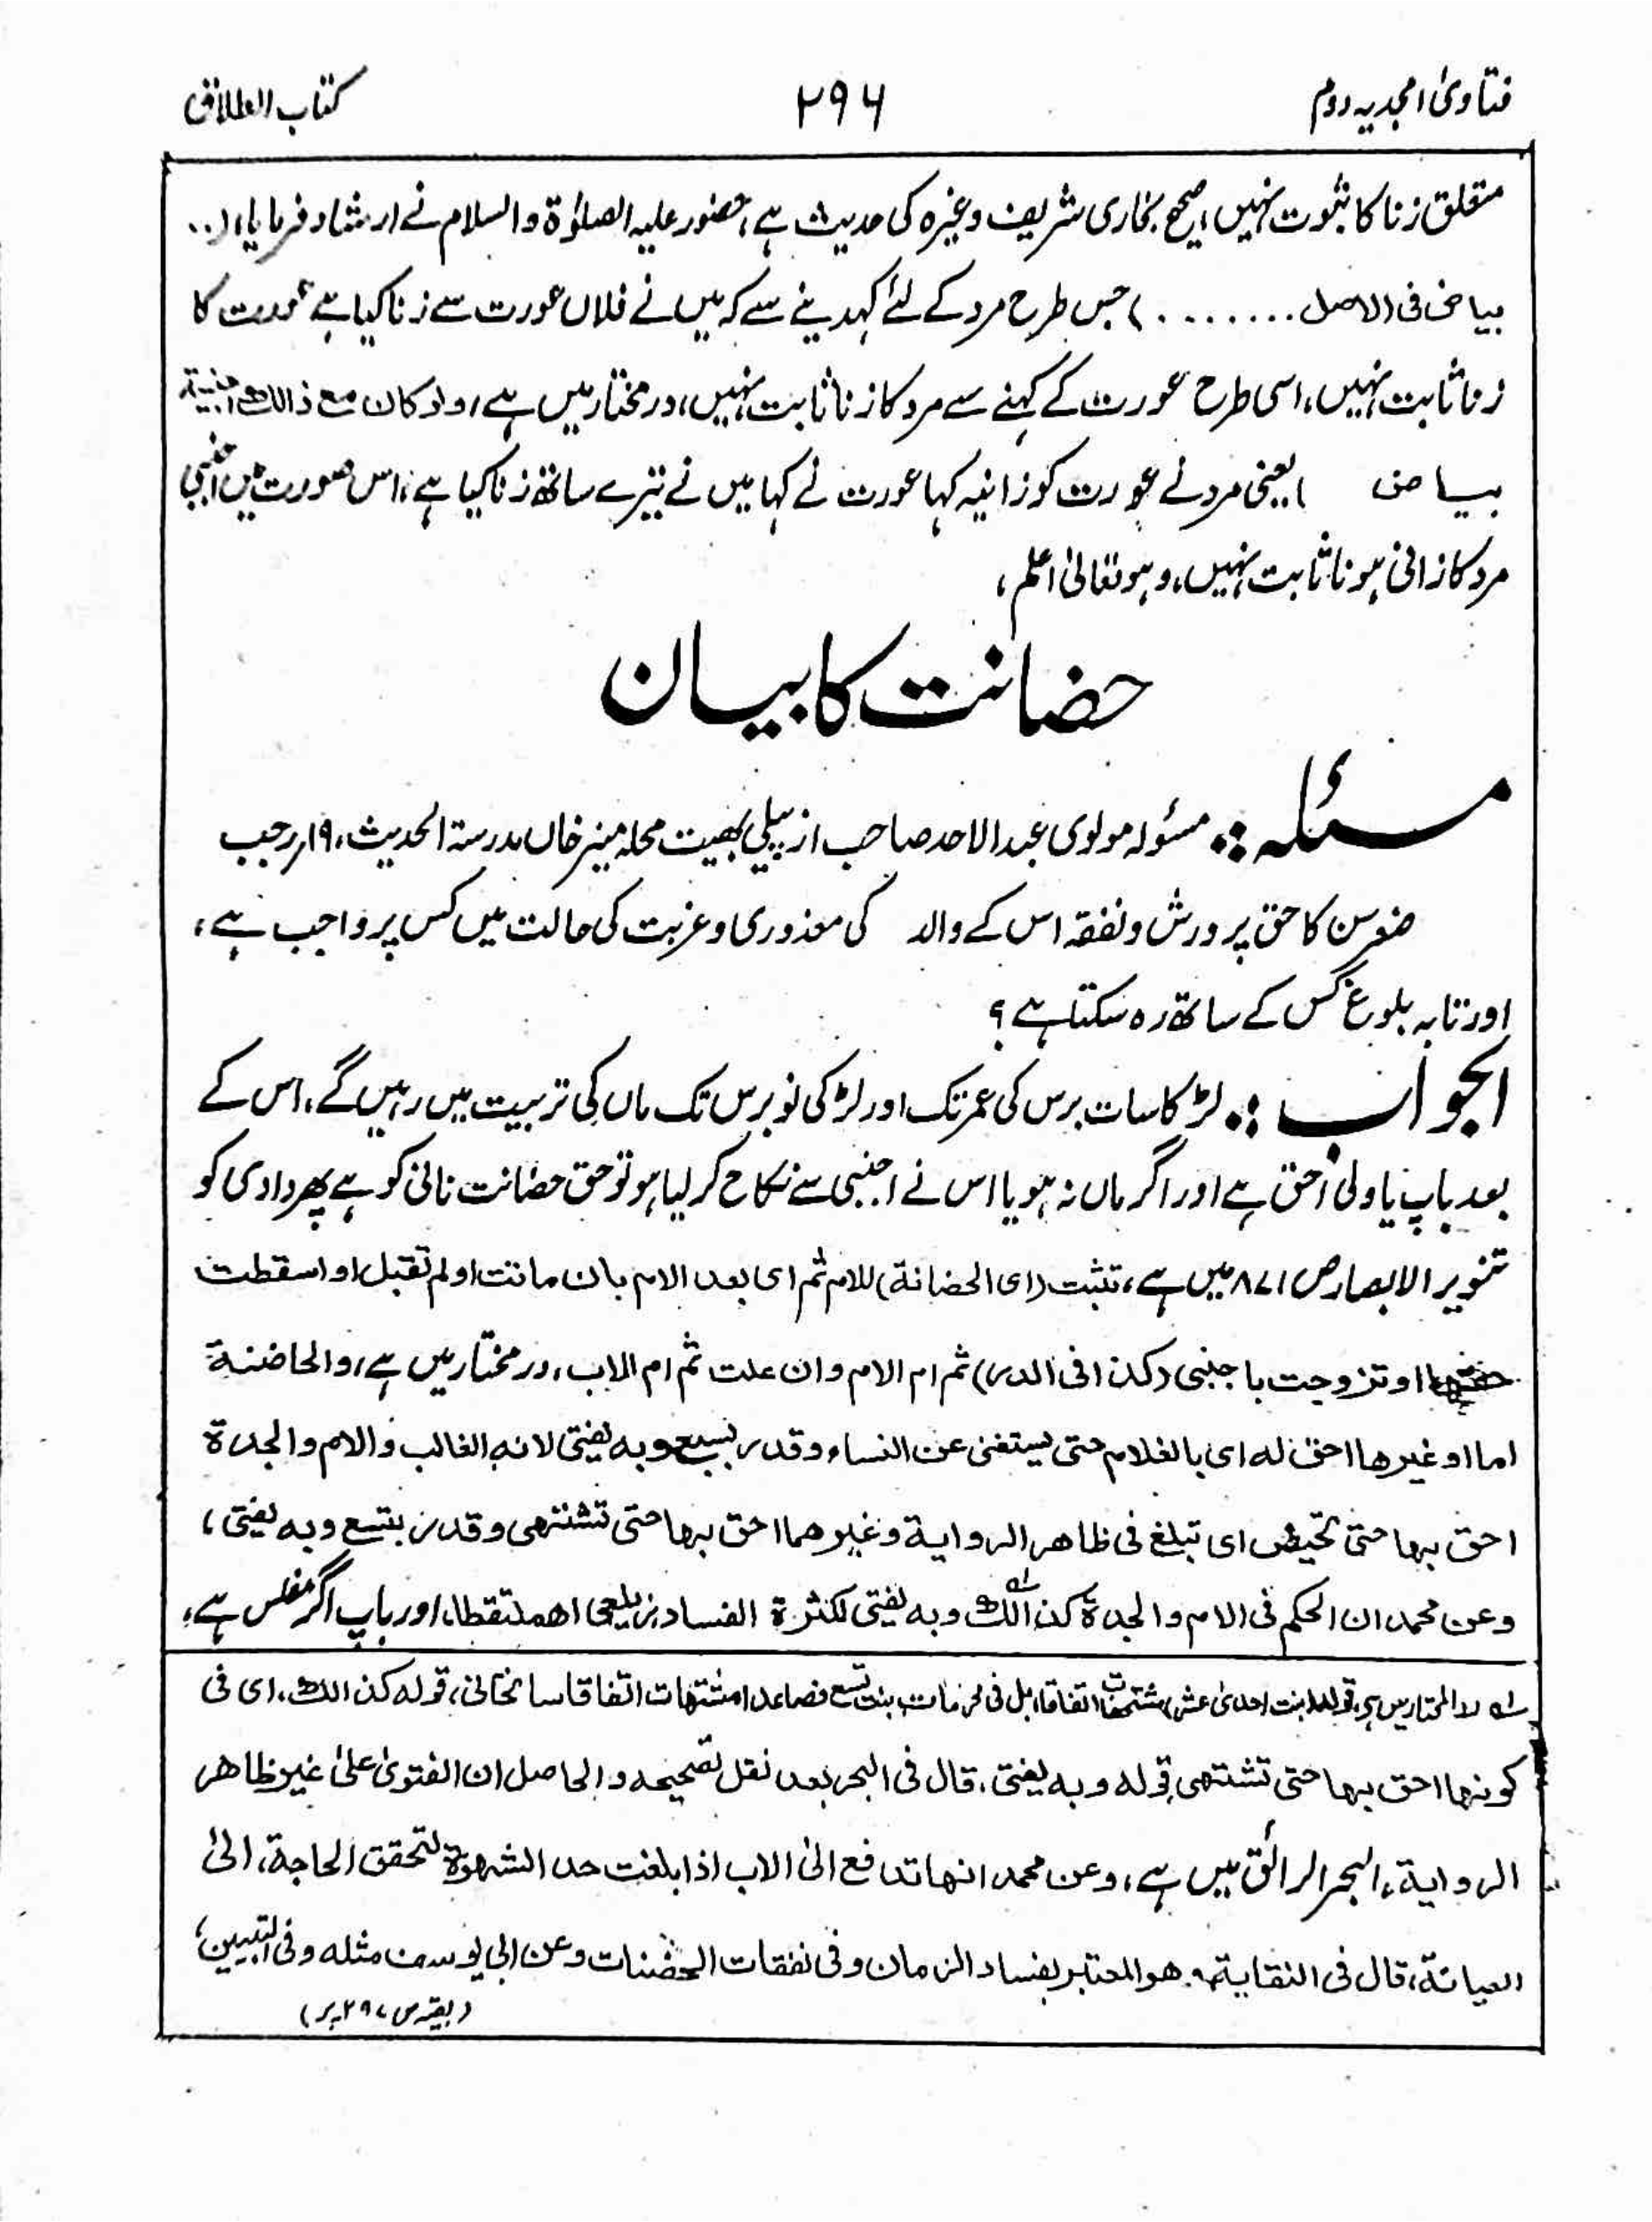 فتاویٰ امجدیہ دوم
۲۹۶
کتاب الطلاق
متعلق زنا کا ثبوت نہیں، صحیح بخاری شریف وغیرہ کی حدیث ہے، حضور علیہ الصلوٰۃ والسلام نے ارشاد فرمایا، (..
بیاض فی الاصل ........) جس طرح مرد کے لئے کہدینے سے کہ میں نے فلاں عورت سے زنا کیا ہے عورت کا
زنا ثابت نہیں، اسی طرح عورت کے کہنے سے مرد کا زنا ثابت نہیں، درمختار میں ہے، ولو کان مع ذالک اجنبیۃ
بیاض ) یعنی مرد نے عورت کو زانیہ کہا عورت نے کہا میں نے تیرے ساتھ زنا کیا ہے، اس صورت میں اجنبی
مرد کا زانی ہونا ثابت نہیں، وہو تعالیٰ اعلم،
حضانت کا بیان
مسئلہ :: مسئولہ مولوی عبدالاحد صاحب از پیلی بھیت محلہ منیر خاں مدرستہ الحدیث، ۱۹؍ رجب
صغرسن کا حق پرورش ونفقہ اس کے والد کی معذوری وغربت کی حالت میں کس پر واجب ہے،
اور تابہ بلوغ کس کے ساتھ رہ سکتا ہے؟
الجواب :: لڑکا سات برس کی عمر تک اور لڑکی نو برس تک ماں کی تربیت میں رہیں گے، اس کے
بعد باپ یا ولی احق ہے اور اگر ماں نہ ہو یا اس نے اجنبی سے نکاح کرلیا ہو تو حق حضانت نانی کو ہے پھر دادی کو
تنویر الابصار ص ۸۷۱ میں ہے، تثبت (ای الحضانۃ) للام ثم ای بعد الام بان ماتت او لم تقبل او اسقطت
حقہا او تزوجت باجنبی (کذا فی الدر) ثم ام الام وان علت ثم ام الاب، درمختار میں ہے، والحاضنۃ
اما او غیرها احق له ای بالغلام حتی یستغنی عن النساء وقدر بسبع وبه یفتی لانه الغالب والام والجدۃ
احق بہا حتی تحیض ای تبلغ فی ظاهر الروایۃ وغیرهما احق بہا حتی تشتهی وقدر بتسع وبه یفتی،
وعن محمد ان الحکم فی الام والجدۃ کذالک وبه یفتی لکثرۃ الفساد زیلعی اھ ملتقطا، اور باپ اگر مفلس ہے،
لہ ردالمحتار میں ہے، قوله بنت احدیٰ عشر مشتهاۃ اتفاقا، بل فی محرمات، بنت تسع فصاعدا مشتهات اتفاقا سائحانی، قوله کذالک، ای فی
کونہا احق بہا حتی تشتهی، قوله وبه یفتی، قال فی البحر بعد نقل تصحیحه والحاصل ان الفتویٰ علیٰ غیر ظاهر
الروایۃ، البحر الرائق میں ہے، وعن محمد انہا تدفع الیٰ الاب اذا بلغت حد الشهوۃ لتحقق الحاجۃ، الیٰ
الصیانۃ، قال فی النقایۃ هو المعتبر لفساد الزمان وفی نفقات الخصاف وعن ابی یوسف مثله وفی التبیین،
(بقیہ ص ۲۹۷ پر)